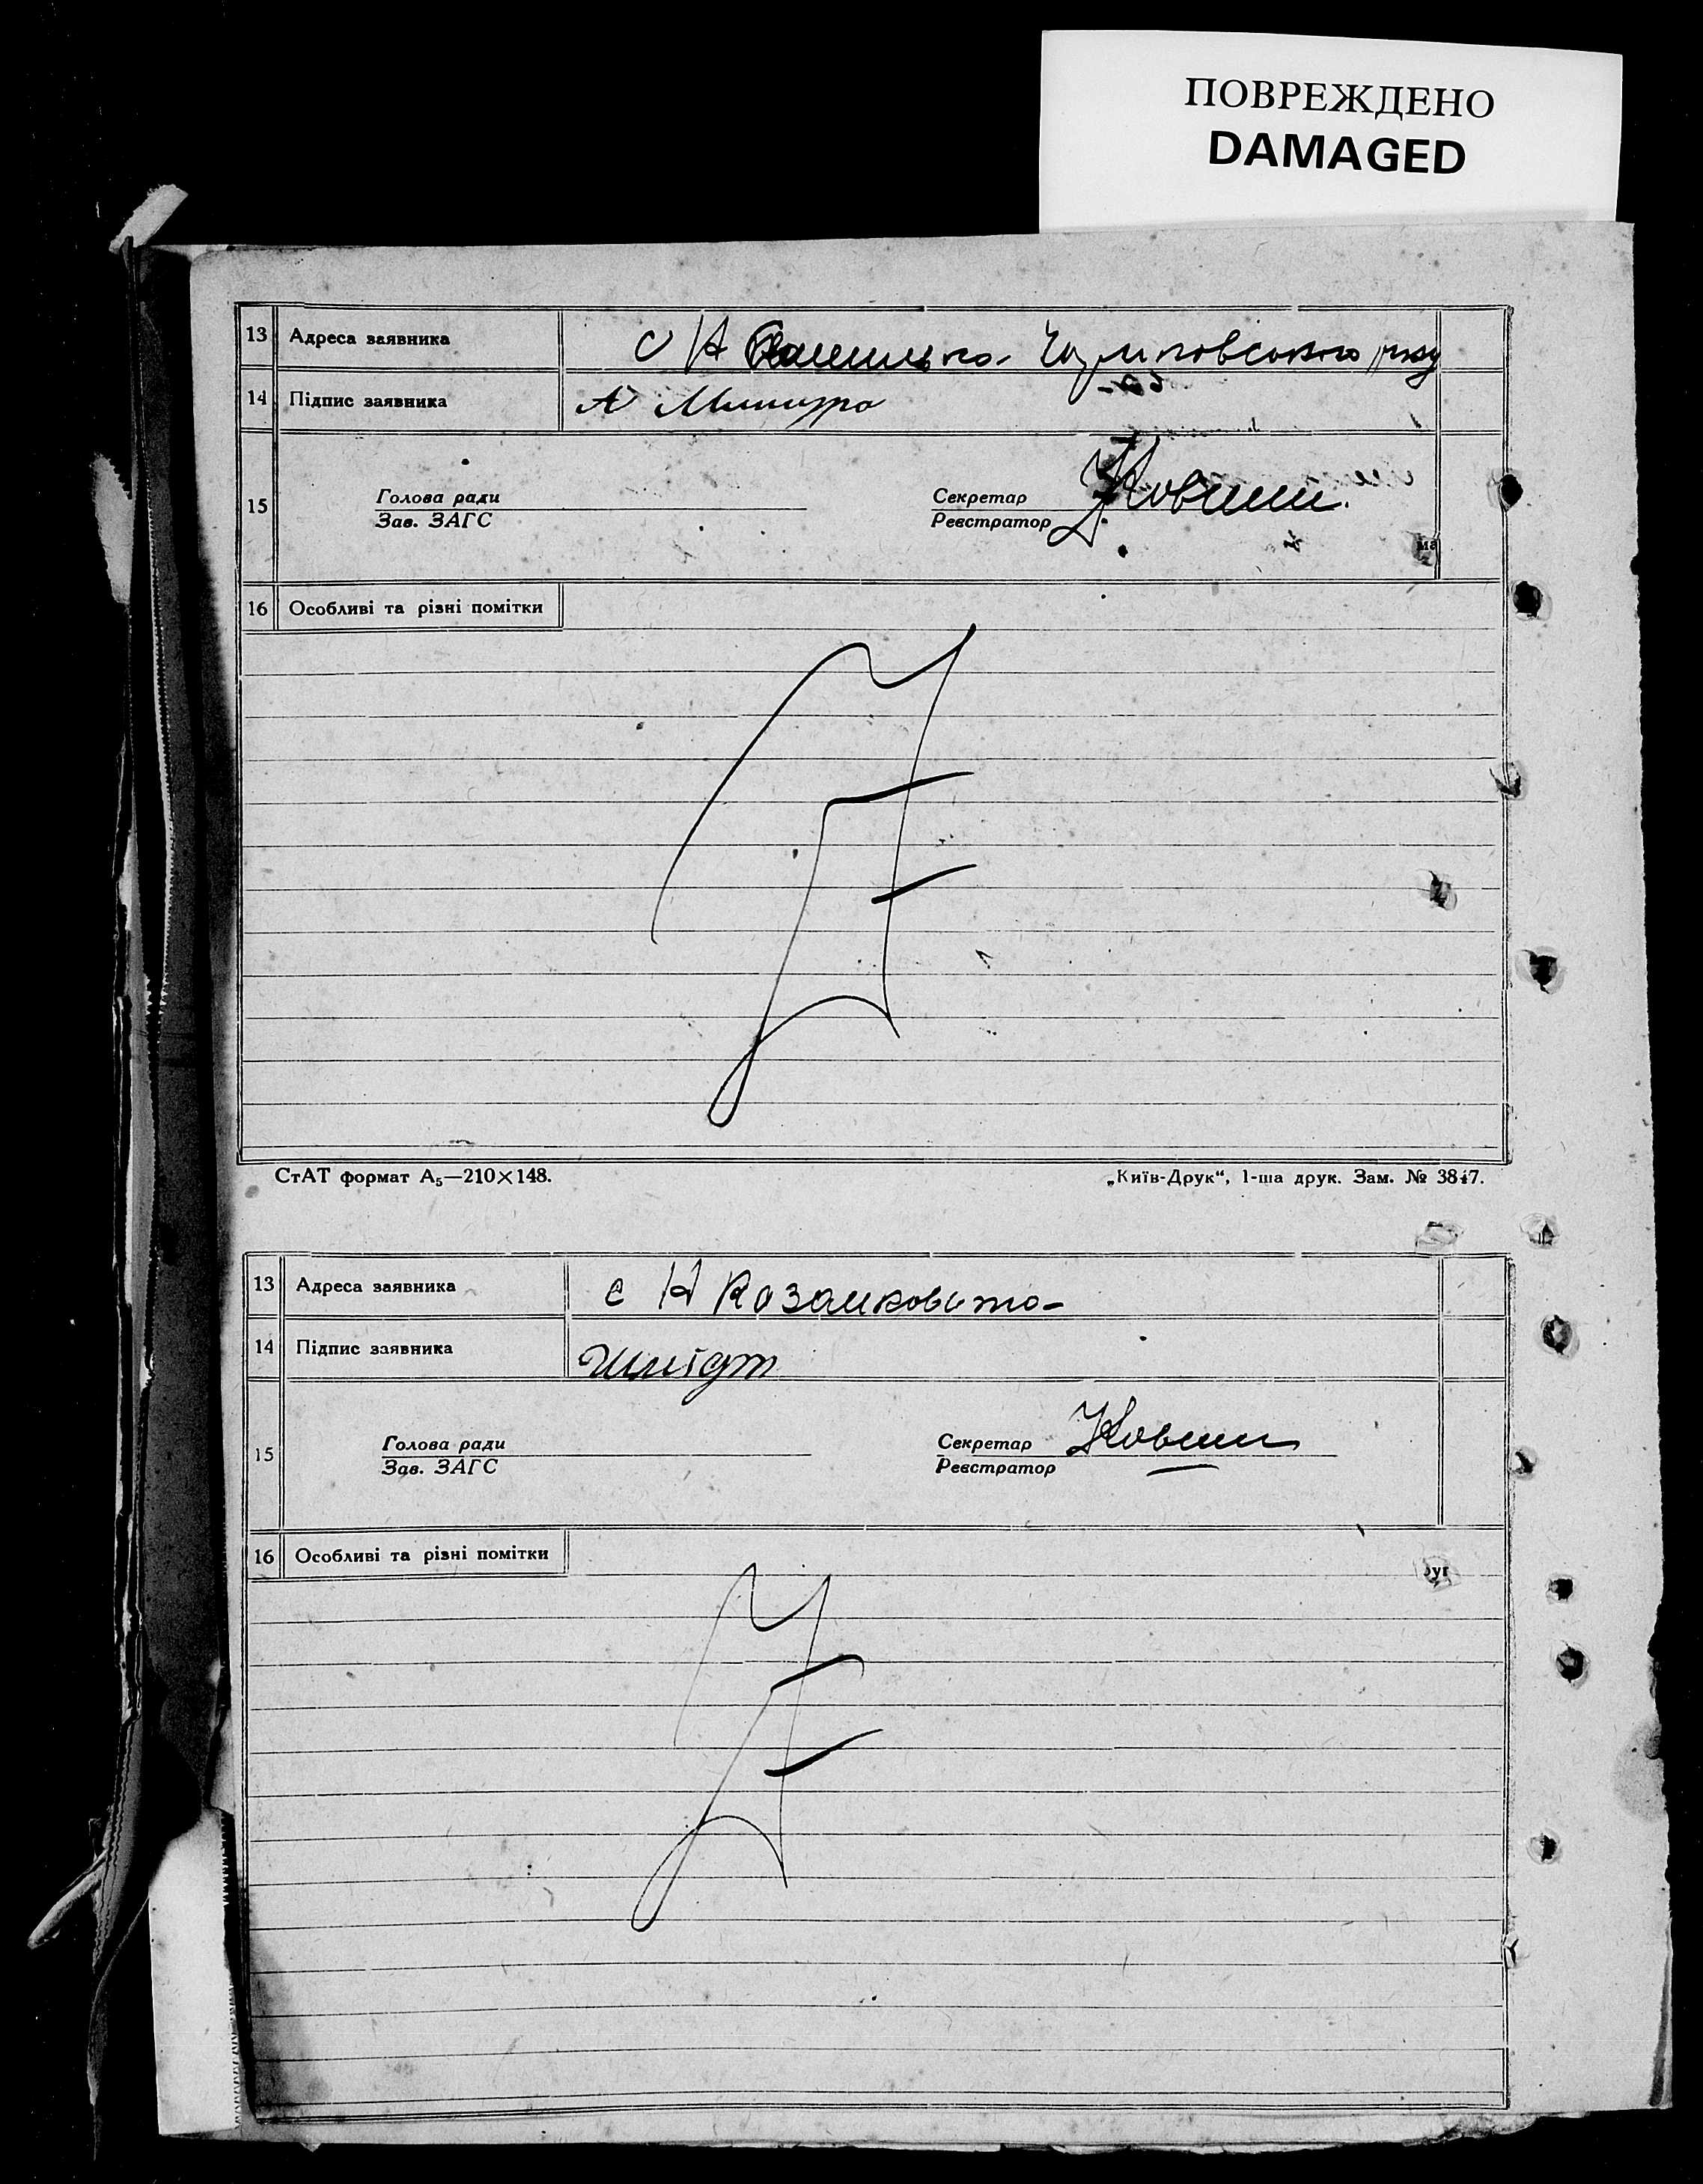 ПОВРЕЖДЕНО
DAMAGED
13 Адреса заявника с Н
14 Підпис заявника А
15 Голова ради Секретар
Зав. ЗАГС Реєстратор
ма
16 Особливі та різні помітки
СтАТ формат А₅—210×148. „Київ-Друк“, 1-ша друк. Зам. № 3847.
13 Адреса заявника с Н
14 Підпис заявника Шмідт
15 Голова ради Секретар
Зав. ЗАГС Реєстратор
16 Особливі та різні помітки